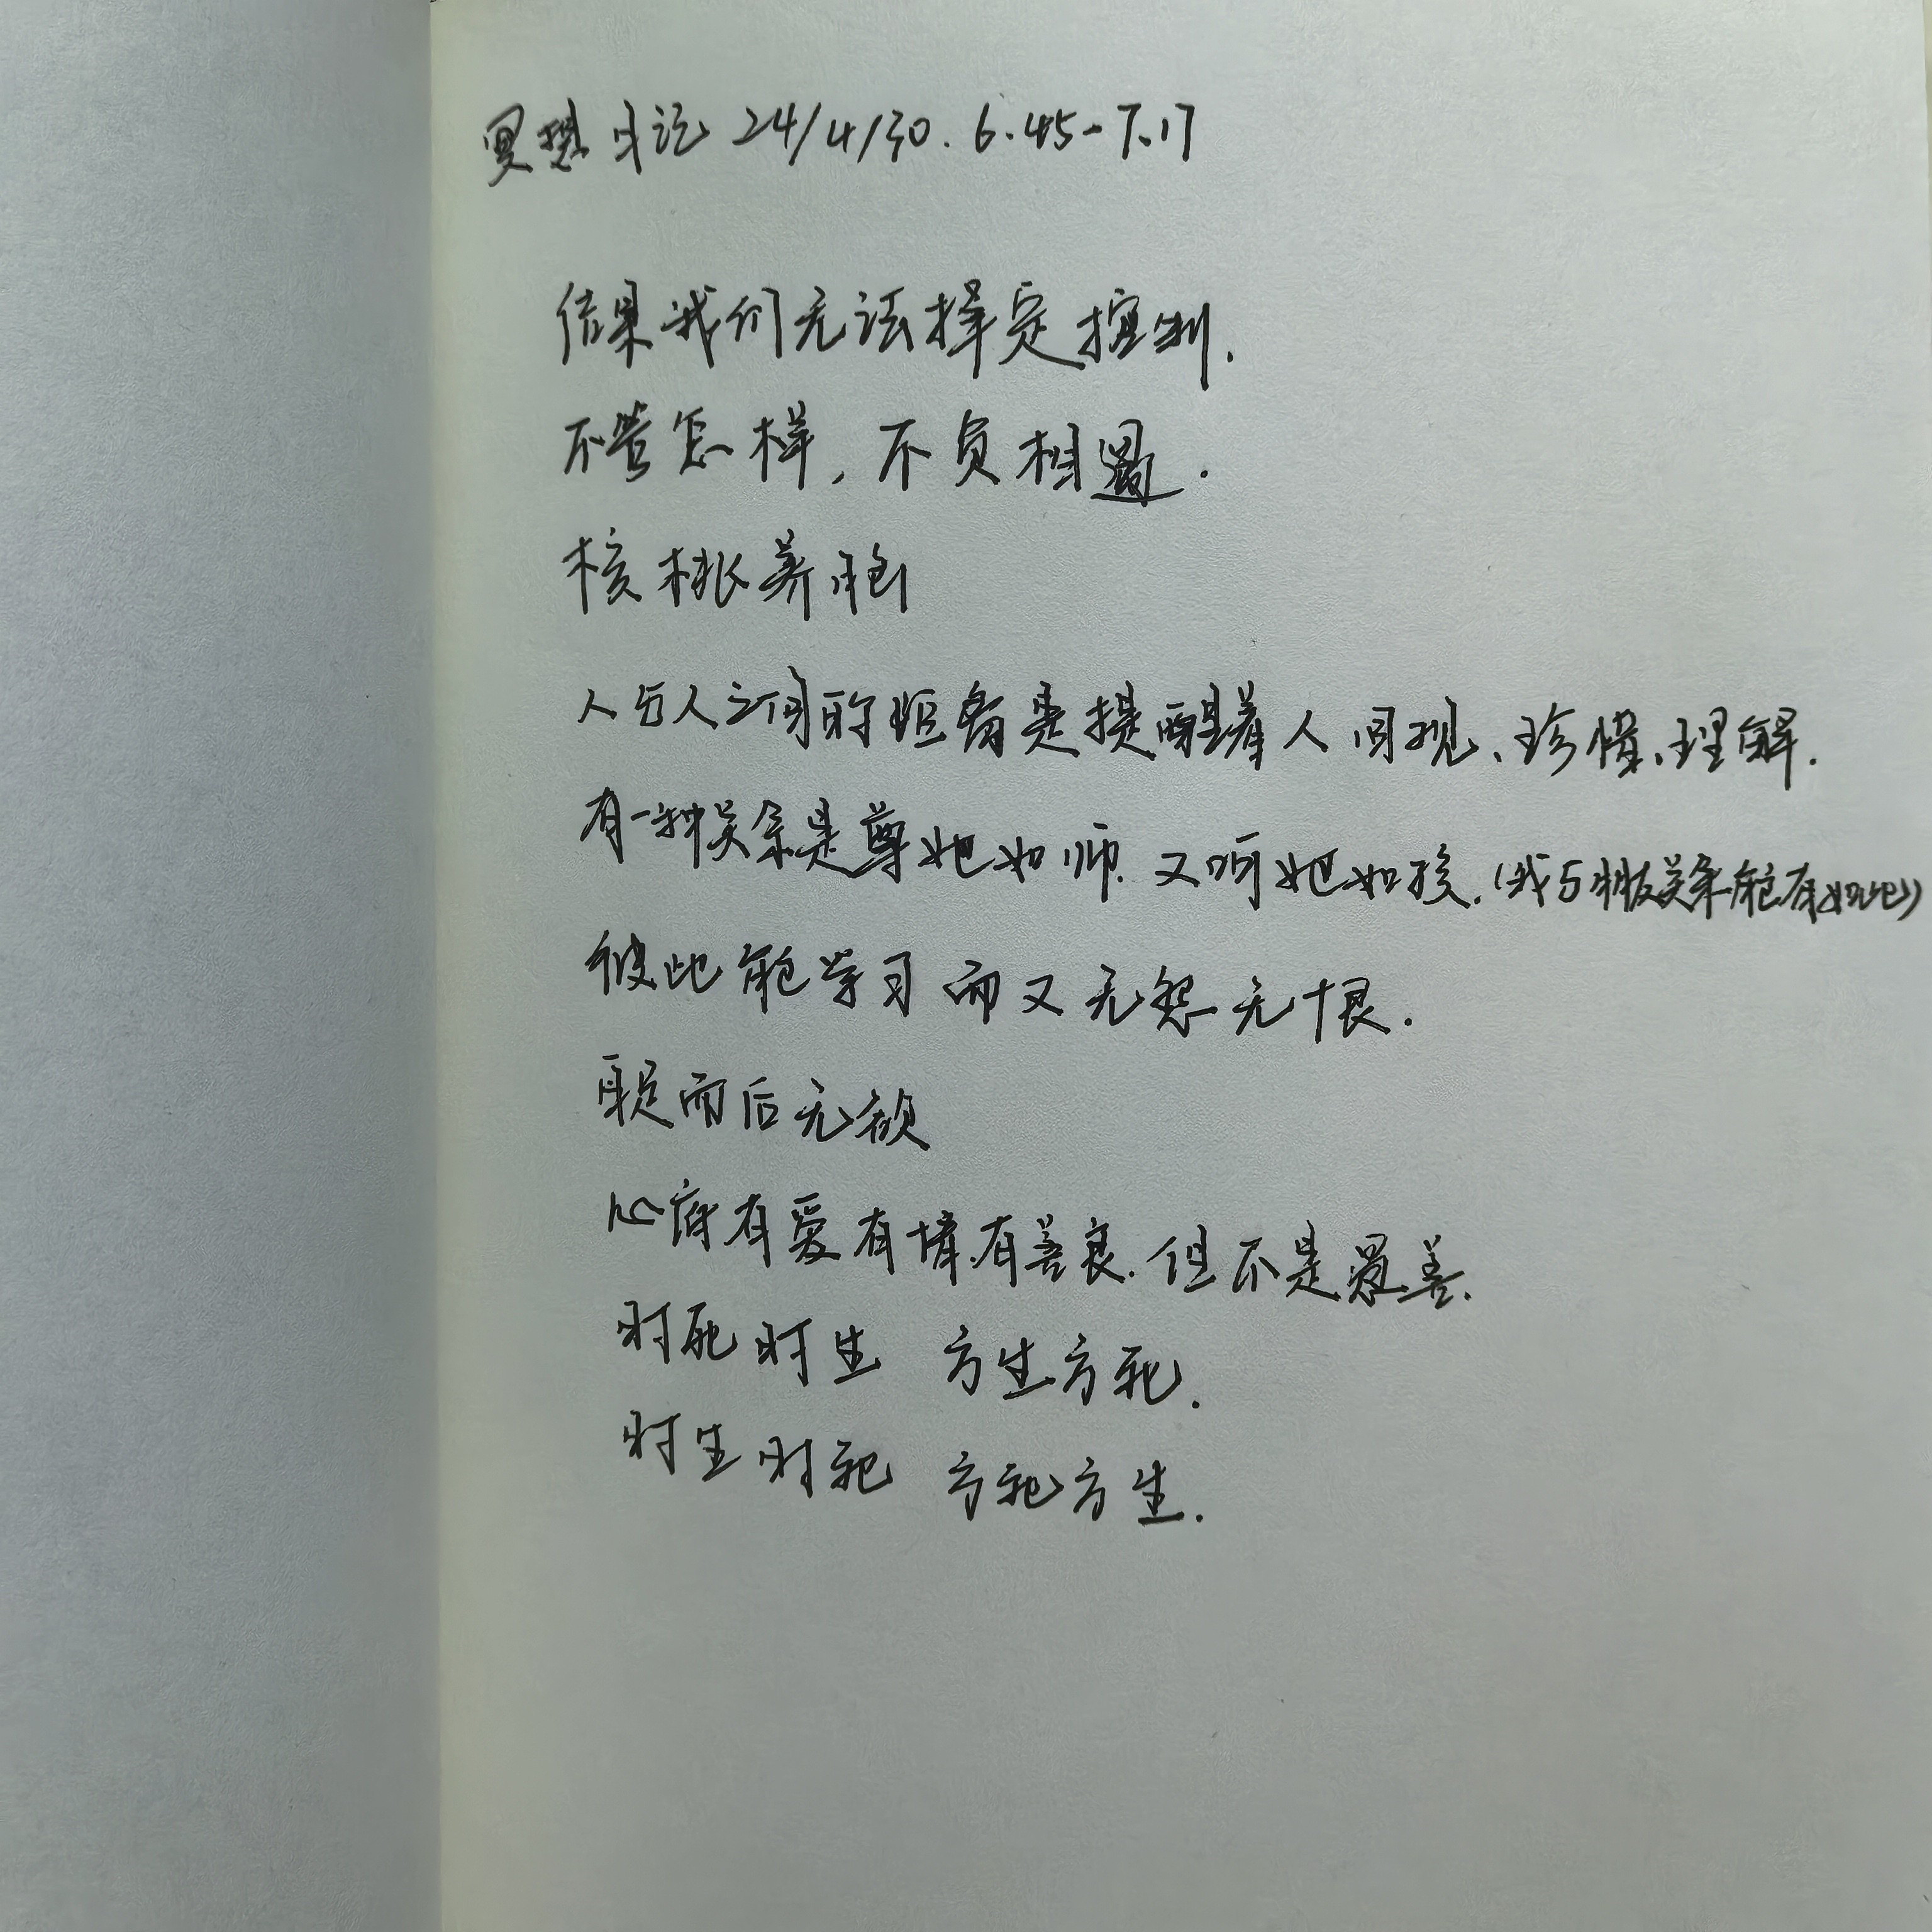 冥想日记 24/4/30. 6.45-7.17
结果我们无法择定控制.
不管怎样,不负相遇.
核桃养胞
人与人之间的距离是提醒着人回观、珍惜、理解.
有一种关系是尊她如师.又呵她如孩.(我与牧关系能有如此)
彼此能学习而又无怨无恨.
而后无欲
心底有爱有情.有善良.但不是愚善.
时死时生 方生方死.
时生时死 方死方生.